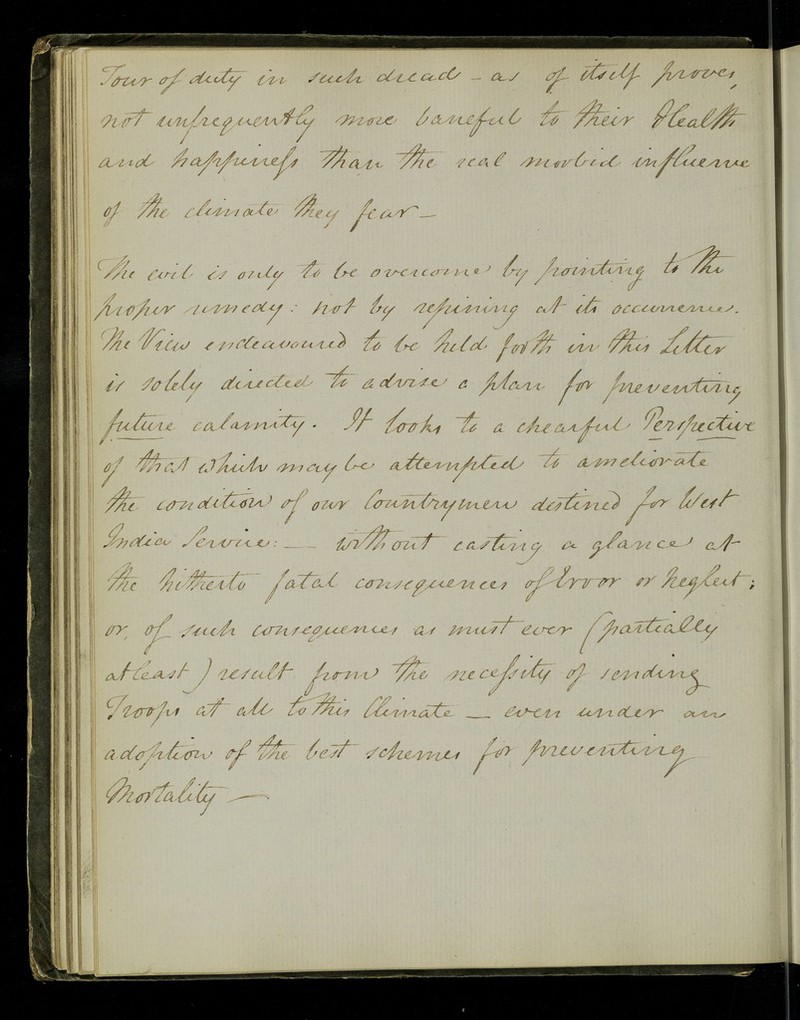 Tour of duty in such dread – as of itself proves,
not unfrequently more baneful to their Health
and happiness than the real morbid influence
of the climate they fear –
The evil is only to be overcome by pointing to the
proper remedy: not by repining at its occurrence.
The View endeavoured to be held forth in this Letter
is solely directed to advise a plan for preventing
future calamity. It looks to a chearful Perspective
of that which may be attempted to ameliorate
the condition of our Countrymen destined for West
India Service: — without casting a glance at
the hitherto fatal consequences of Error or Neglect;
or, of such consequences as must ever (partially
at least) result from the necessity of sending
Troops at all to this Climate — even under an
adoption of the best schemes for preventing
Mortality —